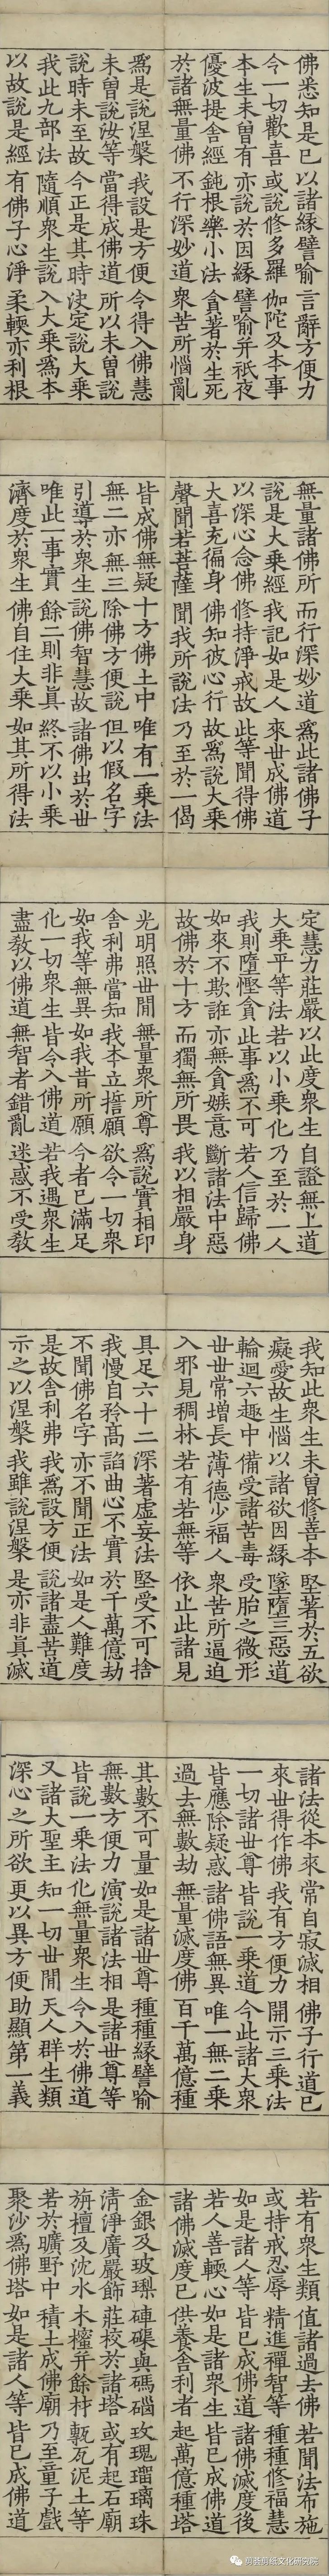 佛悉知是已 以諸緣譬喻 言辭方便力
令一切歡喜 或說修多羅 伽陀及本事
本生未曾有 亦說於因緣 譬喻并祇夜
優波提舍經 鈍根樂小法 貪著於生死
於諸無量佛 不行深妙道 衆苦所惱亂
爲是說涅槃 我設是方便 令得入佛慧
未曾說汝等 當得成佛道 所以未曾說
說時未至故 今正是其時 決定說大乘
我此九部法 隨順衆生說 入大乘爲本
以故說是經 有佛子心淨 柔輭亦利根
無量諸佛所 而行深妙道 爲此諸佛子
說是大乘經 我記如是人 來世成佛道
以深心念佛 修持淨戒故 此等聞得佛
大喜充徧身 佛知彼心行 故爲說大乘
聲聞若菩薩 聞我所說法 乃至於一偈
皆成佛無疑 十方佛土中 唯有一乘法
無二亦無三 除佛方便說 但以假名字
引導於衆生 說佛智慧故 諸佛出於世
唯此一事實 餘二則非眞 終不以小乘
濟度於衆生 佛自住大乘 如其所得法
定慧力莊嚴 以此度衆生 自證無上道
大乘平等法 若以小乘化 乃至於一人
我則墮慳貪 此事爲不可 若人信歸佛
如來不欺誑 亦無貪嫉意 斷諸法中惡
故佛於十方 而獨無所畏 我以相嚴身
光明照世間 無量衆所尊 爲說實相印
舍利弗當知 我本立誓願 欲令一切衆
如我等無異 如我昔所願 今者已滿足
化一切衆生 皆令入佛道 若我遇衆生
盡教以佛道 無智者錯亂 迷惑不受教
我知此衆生 未曾修善本 堅著於五欲
癡愛故生惱 以諸欲因緣 墜墮三惡道
輪迴六趣中 備受諸苦毒 受胎之微形
世世常增長 薄德少福人 衆苦所逼迫
入邪見稠林 若有若無等 依止此諸見
具足六十二 深著虛妄法 堅受不可捨
我慢自矜高 諂曲心不實 於千萬億劫
不聞佛名字 亦不聞正法 如是人難度
是故舍利弗 我爲設方便 說諸盡苦道
示之以涅槃 我雖說涅槃 是亦非眞滅
諸法從本來 常自寂滅相 佛子行道已
來世得作佛 我有方便力 開示三乘法
一切諸世尊 皆說一乘道 今此諸大衆
皆應除疑惑 諸佛語無異 唯一無二乘
過去無數劫 無量滅度佛 百千萬億種
其數不可量 如是諸世尊 種種緣譬喻
無數方便力 演說諸法相 是諸世尊等
皆說一乘法 化無量衆生 令入於佛道
又諸大聖主 知一切世間 天人群生類
深心之所欲 更以異方便 助顯第一義
若有衆生類 值諸過去佛 若聞法布施
或持戒忍辱 精進禪智等 種種修福慧
如是諸人等 皆已成佛道 諸佛滅度後
若人善輭心 如是諸衆生 皆已成佛道
諸佛滅度已 供養舍利者 起萬億種塔
金銀及玻瓈 硨磲與碼碯 玫瑰瑠璃珠
清淨廣嚴飾 莊校於諸塔 或有起石廟
旃檀及沈水 木櫁并餘材 甎瓦泥土等
若於曠野中 積土成佛廟 乃至童子戲
聚沙爲佛塔 如是諸人等 皆已成佛道
剪爺剪紙文化研究院